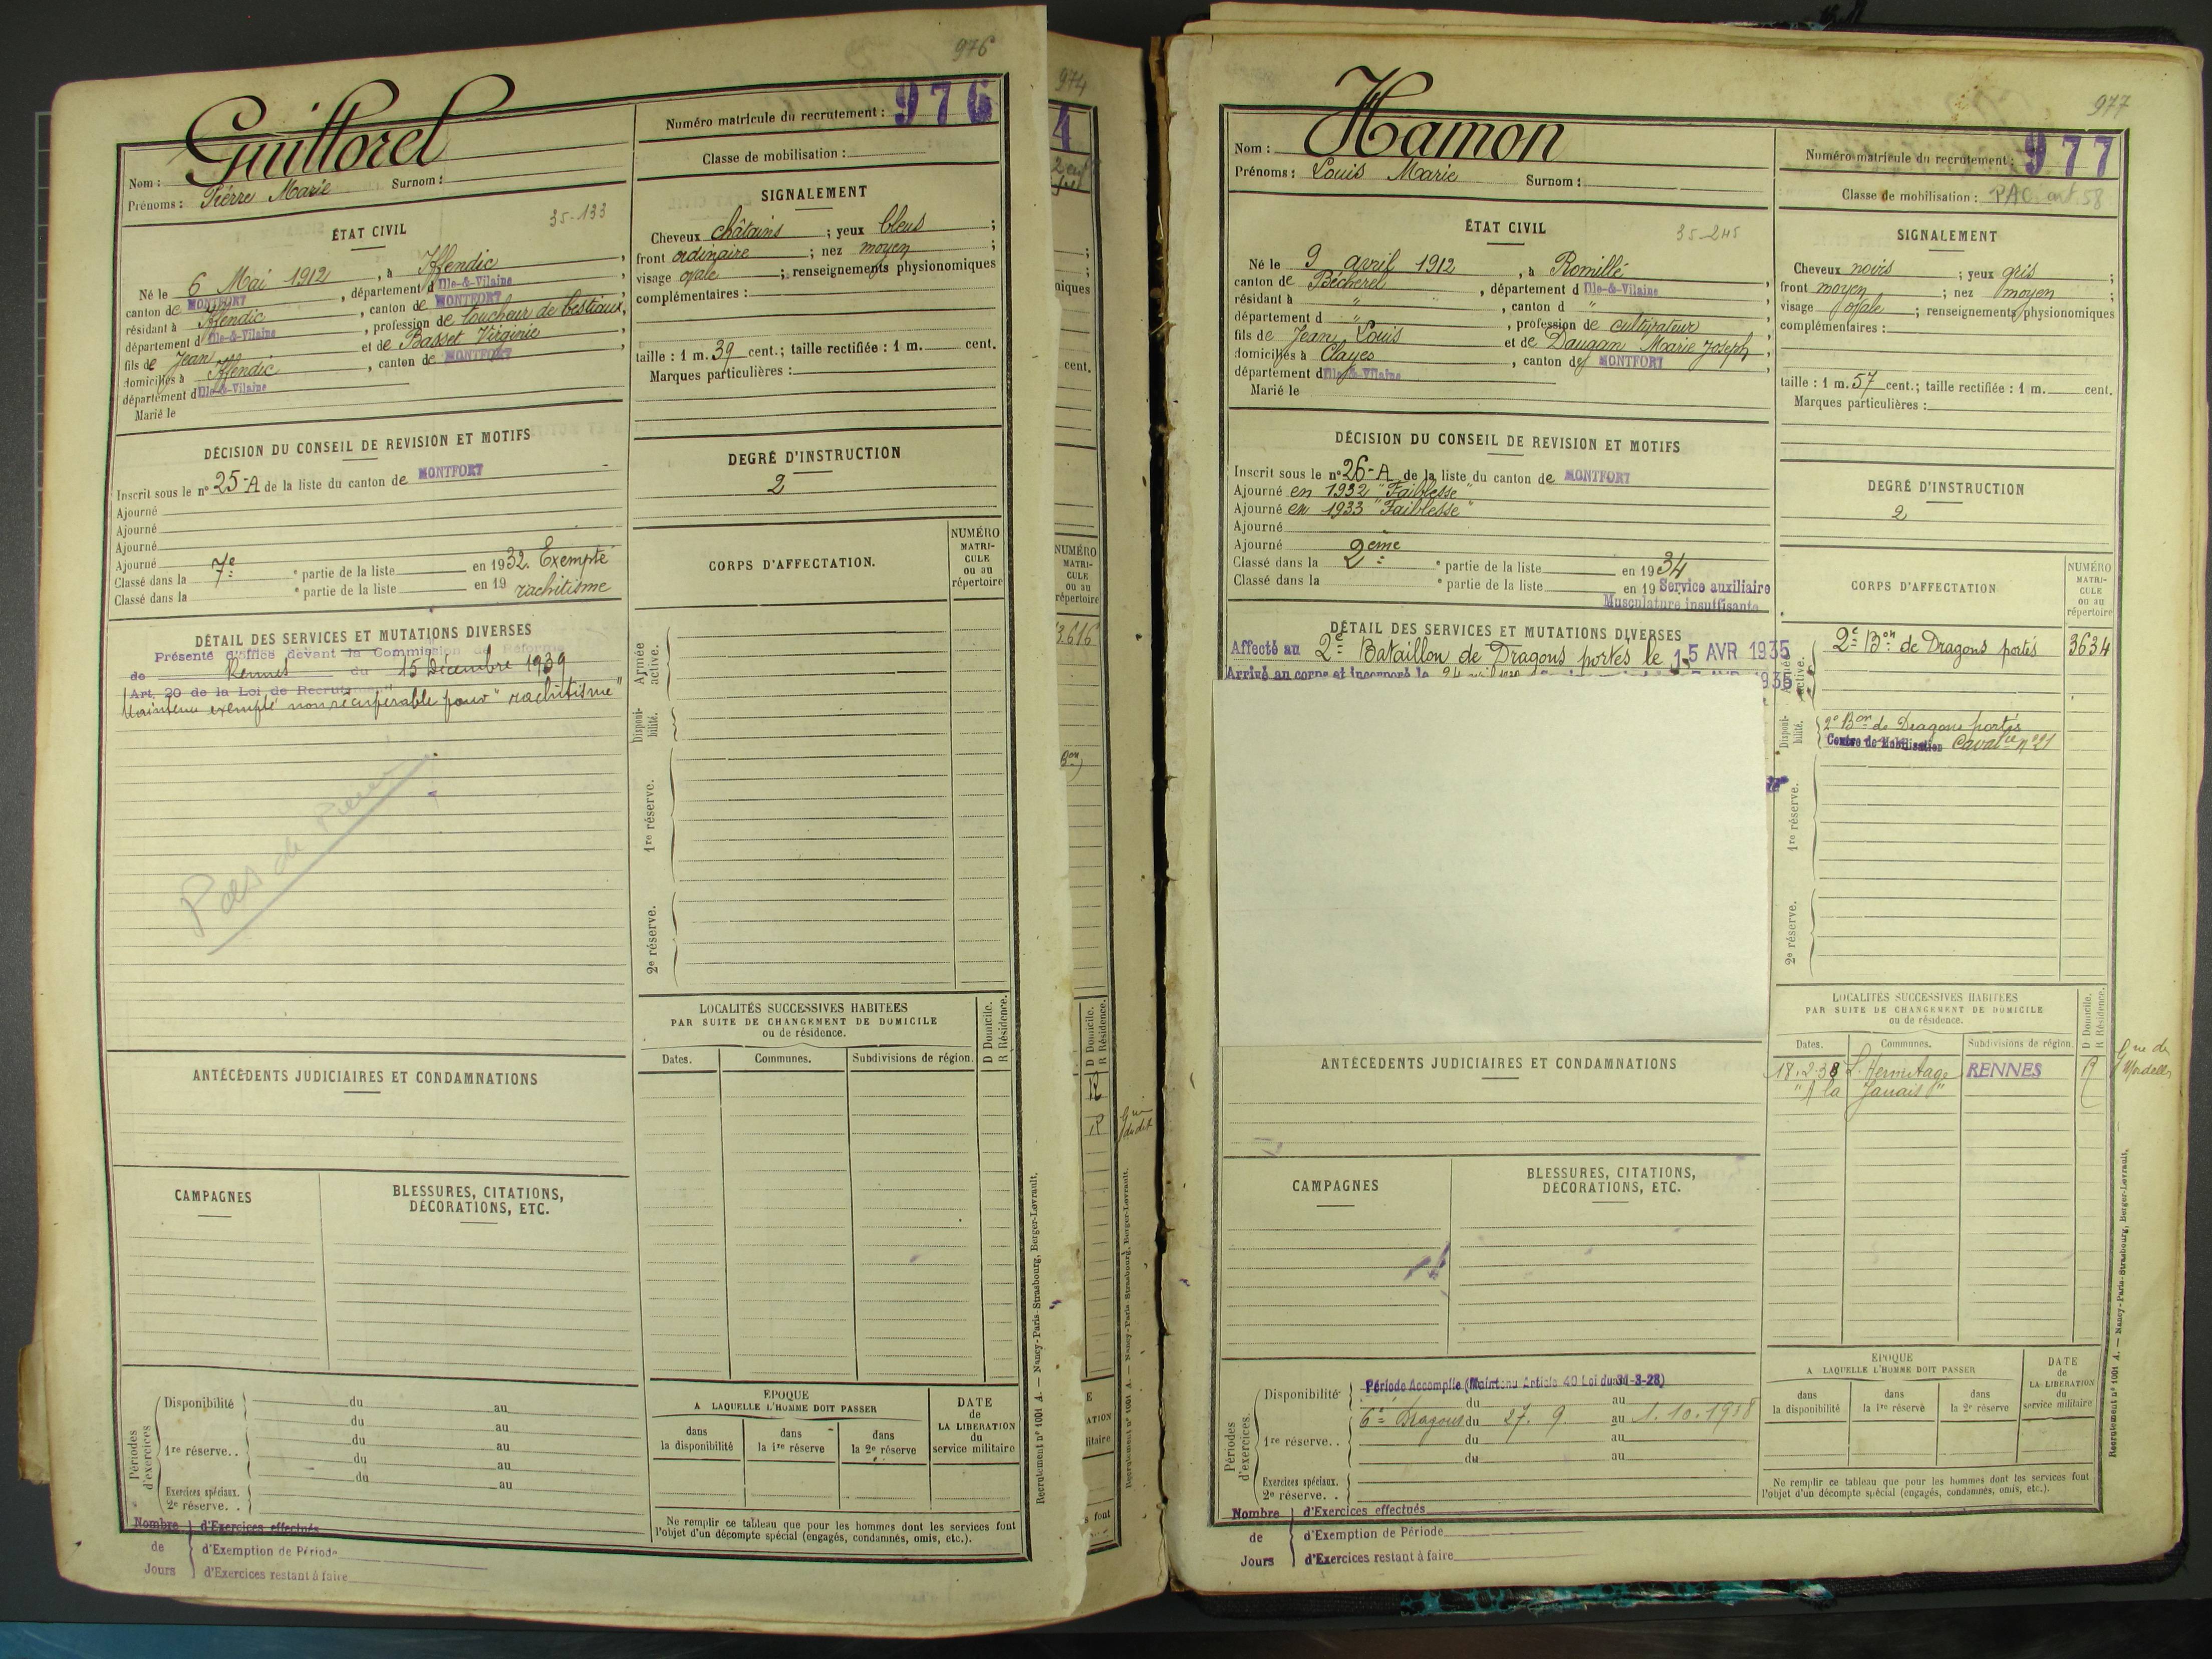 976
Guillorel
Nom :
Prénoms : Pierre Marie Surnom :
Numéro matricule du recrutement : 976
Classe de mobilisation :
ÉTAT CIVIL
35-133
Né le 6 Mai 1912, à Iffendic,
canton de MONTFORT, département d Ille-&-Vilaine
résidant à Iffendic, canton de MONTFORT
département d Ille-&-Vilaine, profession de toucheur de bestiaux,
fils de Jean et de Basset Virginie,
domiciliés à Iffendic, canton de MONTFORT
département d Ille-&-Vilaine
Marié le
SIGNALEMENT
Cheveux châtains ; yeux bleus ;
front ordinaire ; nez moyen ;
visage ovale ; renseignements physionomiques
complémentaires :
taille : 1 m. 39 cent.; taille rectifiée : 1 m. cent.
Marques particulières :
DÉCISION DU CONSEIL DE REVISION ET MOTIFS
Inscrit sous le n° 25-A de la liste du canton de MONTFORT
Ajourné
Ajourné
Ajourné
Ajourné
Classé dans la 7e ° partie de la liste en 1932. Exempté
Classé dans la ° partie de la liste en 19 rachitisme
DEGRÉ D'INSTRUCTION
2
CORPS D'AFFECTATION.
NUMÉRO
MATRI-
CULE
ou au
répertoire
DÉTAIL DES SERVICES ET MUTATIONS DIVERSES
Présenté d'office devant la Commission de Réforme
de Rennes du 15 Décembre 1939
Art. 20 de la Loi de Recrutement
Maintenu exempté non récupérable pour "rachitisme"
Pas de
Armée
active.
Disponi-
bilité.
1re réserve.
2e réserve.
LOCALITÉS SUCCESSIVES HABITÉES
PAR SUITE DE CHANGEMENT DE DOMICILE
ou de résidence.
D Domicile.
R Résidence.
Dates.
Communes.
Subdivisions de région.
ANTÉCÉDENTS JUDICIAIRES ET CONDAMNATIONS
CAMPAGNES
BLESSURES, CITATIONS,
DÉCORATIONS, ETC.
Périodes
d'exercices
Disponibilité du au
du au
1re réserve.. du au
du au
du au
Exercices spéciaux.
2e réserve. .
ÉPOQUE
A LAQUELLE L'HOMME DOIT PASSER
dans
la disponibilité
dans
la 1re réserve
dans
la 2e réserve
DATE
de
LA LIBERATION
du
service militaire
Ne remplir ce tableau que pour les hommes dont les services font
l'objet d'un décompte spécial (engagés, condamnés, omis, etc.).
Nombre
de
Jours
d'Exercices effectués
d'Exemption de Période
d'Exercices restant à faire
Recrutement n° 1001 A. — Nancy-Paris-Strasbourg, Berger-Levrault.
974
4
niques
cent.
NUMÉRO
MATRI-
CULE
ou au
répertoire
3616
D Domicile.
R Résidence.
R
R
Recrutement n° 1001 A. — Nancy-Paris-Strasbourg, Berger-Levrault.
977
Nom : Hamon
Prénoms : Louis Marie Surnom :
Numéro matricule du recrutement : 977
Classe de mobilisation : PAC art 58
ÉTAT CIVIL
35-245
Né le 9 avril 1912, à Romillé
canton de Bécherel, département d Ille-&-Vilaine
résidant à ", canton d "
département d ", profession de cultivateur
fils de Jean Louis et de Daugan Marie Joseph,
domiciliés à Clayes, canton de MONTFORT
département d Ille-&-Vilaine
Marié le
SIGNALEMENT
Cheveux noirs ; yeux gris ;
front moyen ; nez moyen ;
visage ovale ; renseignements physionomiques
complémentaires :
taille : 1 m. 57 cent.; taille rectifiée : 1 m. cent.
Marques particulières :
DÉCISION DU CONSEIL DE REVISION ET MOTIFS
Inscrit sous le n° 26-A de la liste du canton de MONTFORT
Ajourné en 1932 "Faiblesse"
Ajourné en 1933 "Faiblesse"
Ajourné
Ajourné 2eme
Classé dans la 2e ° partie de la liste en 1934
Classé dans la ° partie de la liste en 19 Service auxiliaire
Musculature insuffisante
DEGRÉ D'INSTRUCTION
2
CORPS D'AFFECTATION
NUMÉRO
MATRI-
CULE
ou au
répertoire
DÉTAIL DES SERVICES ET MUTATIONS DIVERSES
Affecté au 2e Bataillon de Dragons portés le 15 AVR 1935
Arrivé au corps et incorporé le
active.
2e Bon de Dragons portés 3634
Disponi-
bilité.
2e Bon de Dragons portés
Centre de Mobilisation Cavalie n°21
1re réserve.
2e réserve.
LOCALITÉS SUCCESSIVES HABITÉES
PAR SUITE DE CHANGEMENT DE DOMICILE
ou de résidence.
D Domicile.
R Résidence.
Dates.
Communes.
Subdivisions de région.
18.2.38 L'Hermitage RENNES R
"A la Janais"
Gne de
Mordelles
ANTÉCÉDENTS JUDICIAIRES ET CONDAMNATIONS
CAMPAGNES
BLESSURES, CITATIONS,
DÉCORATIONS, ETC.
Périodes
d'exercices.
Disponibilité Période Accomplie (Maintenu Article 40 Loi du 31-3-28)
du au
6e Dragons du 27. 9 au 1.10.1938
1re réserve.. du au
du au
Exercices spéciaux.
2e réserve. .
ÉPOQUE
A LAQUELLE L'HOMME DOIT PASSER
dans
la disponibilité
dans
la 1re réserve
dans
la 2e réserve
DATE
de
LA LIBERATION
du
service militaire
Ne remplir ce tableau que pour les hommes dont les services font
l'objet d'un décompte spécial (engagés, condamnés, omis, etc.).
Nombre
de
Jours
d'Exercices effectués
d'Exemption de Période
d'Exercices restant à faire
Recrutement n° 1001 A. — Nancy-Paris-Strasbourg, Berger-Levrault.